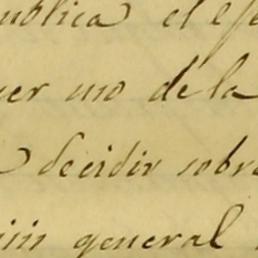 ublica el eje
uer uno de la
decidir sobre
general